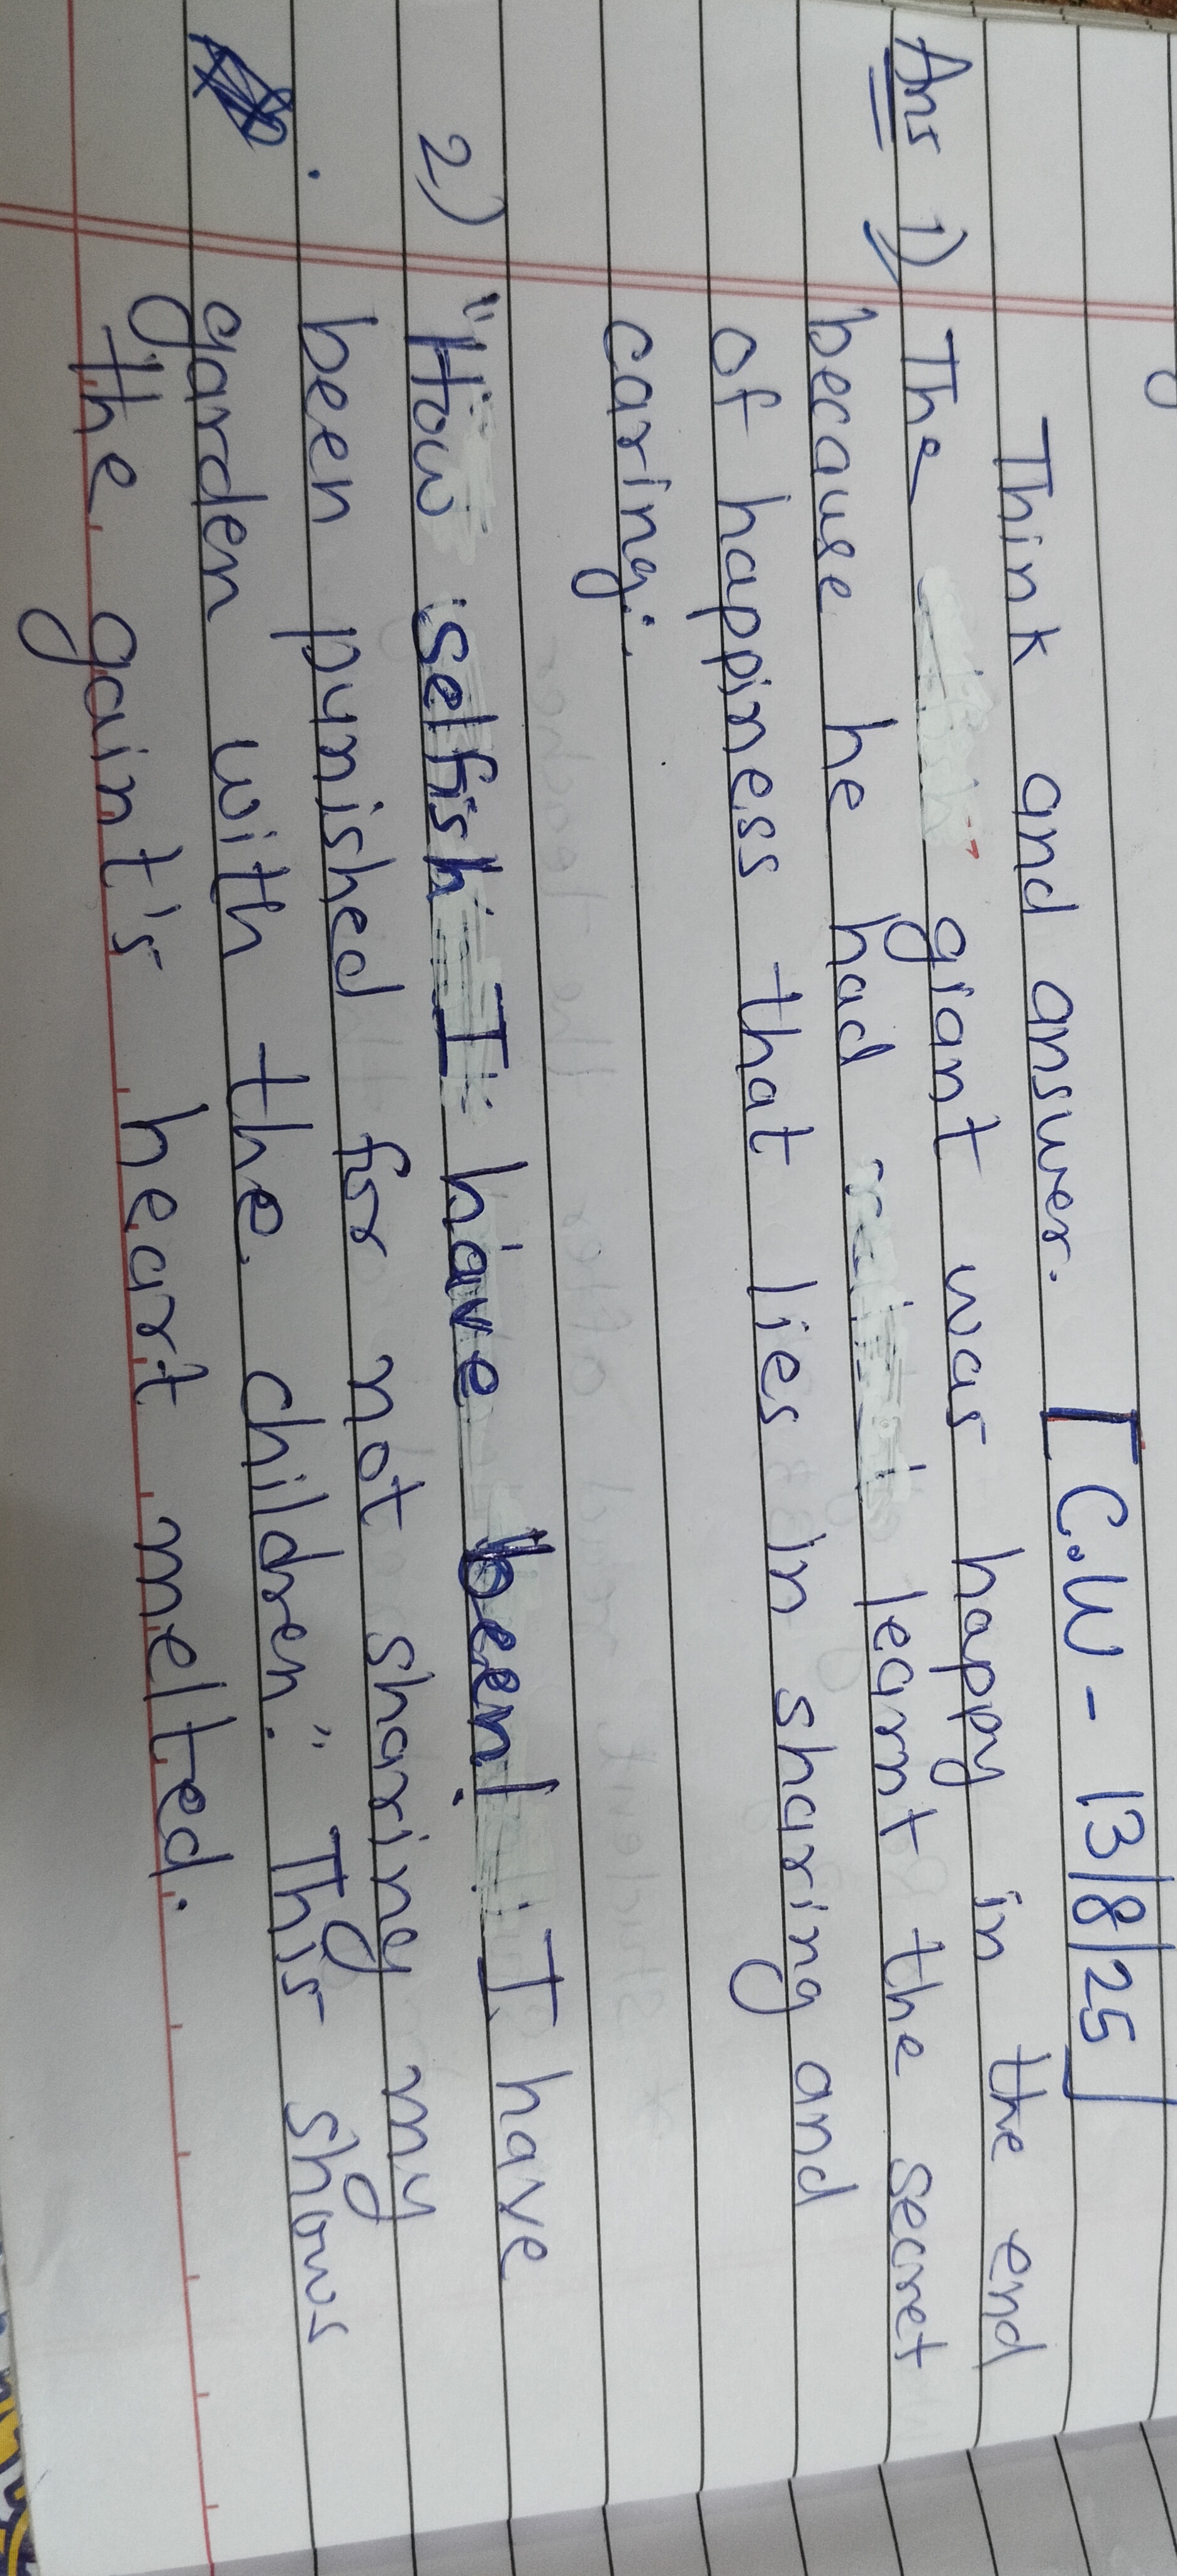 Think and answer. [C.W - 13/8/25]
Ans 1) The giant was happy in the end
because he had learnt the secret
of happiness that lies in sharing and
caring.
2) "How selfish I have been! I have
been punished for not sharing my
garden with the children." This shows
the gaint's heart melted.